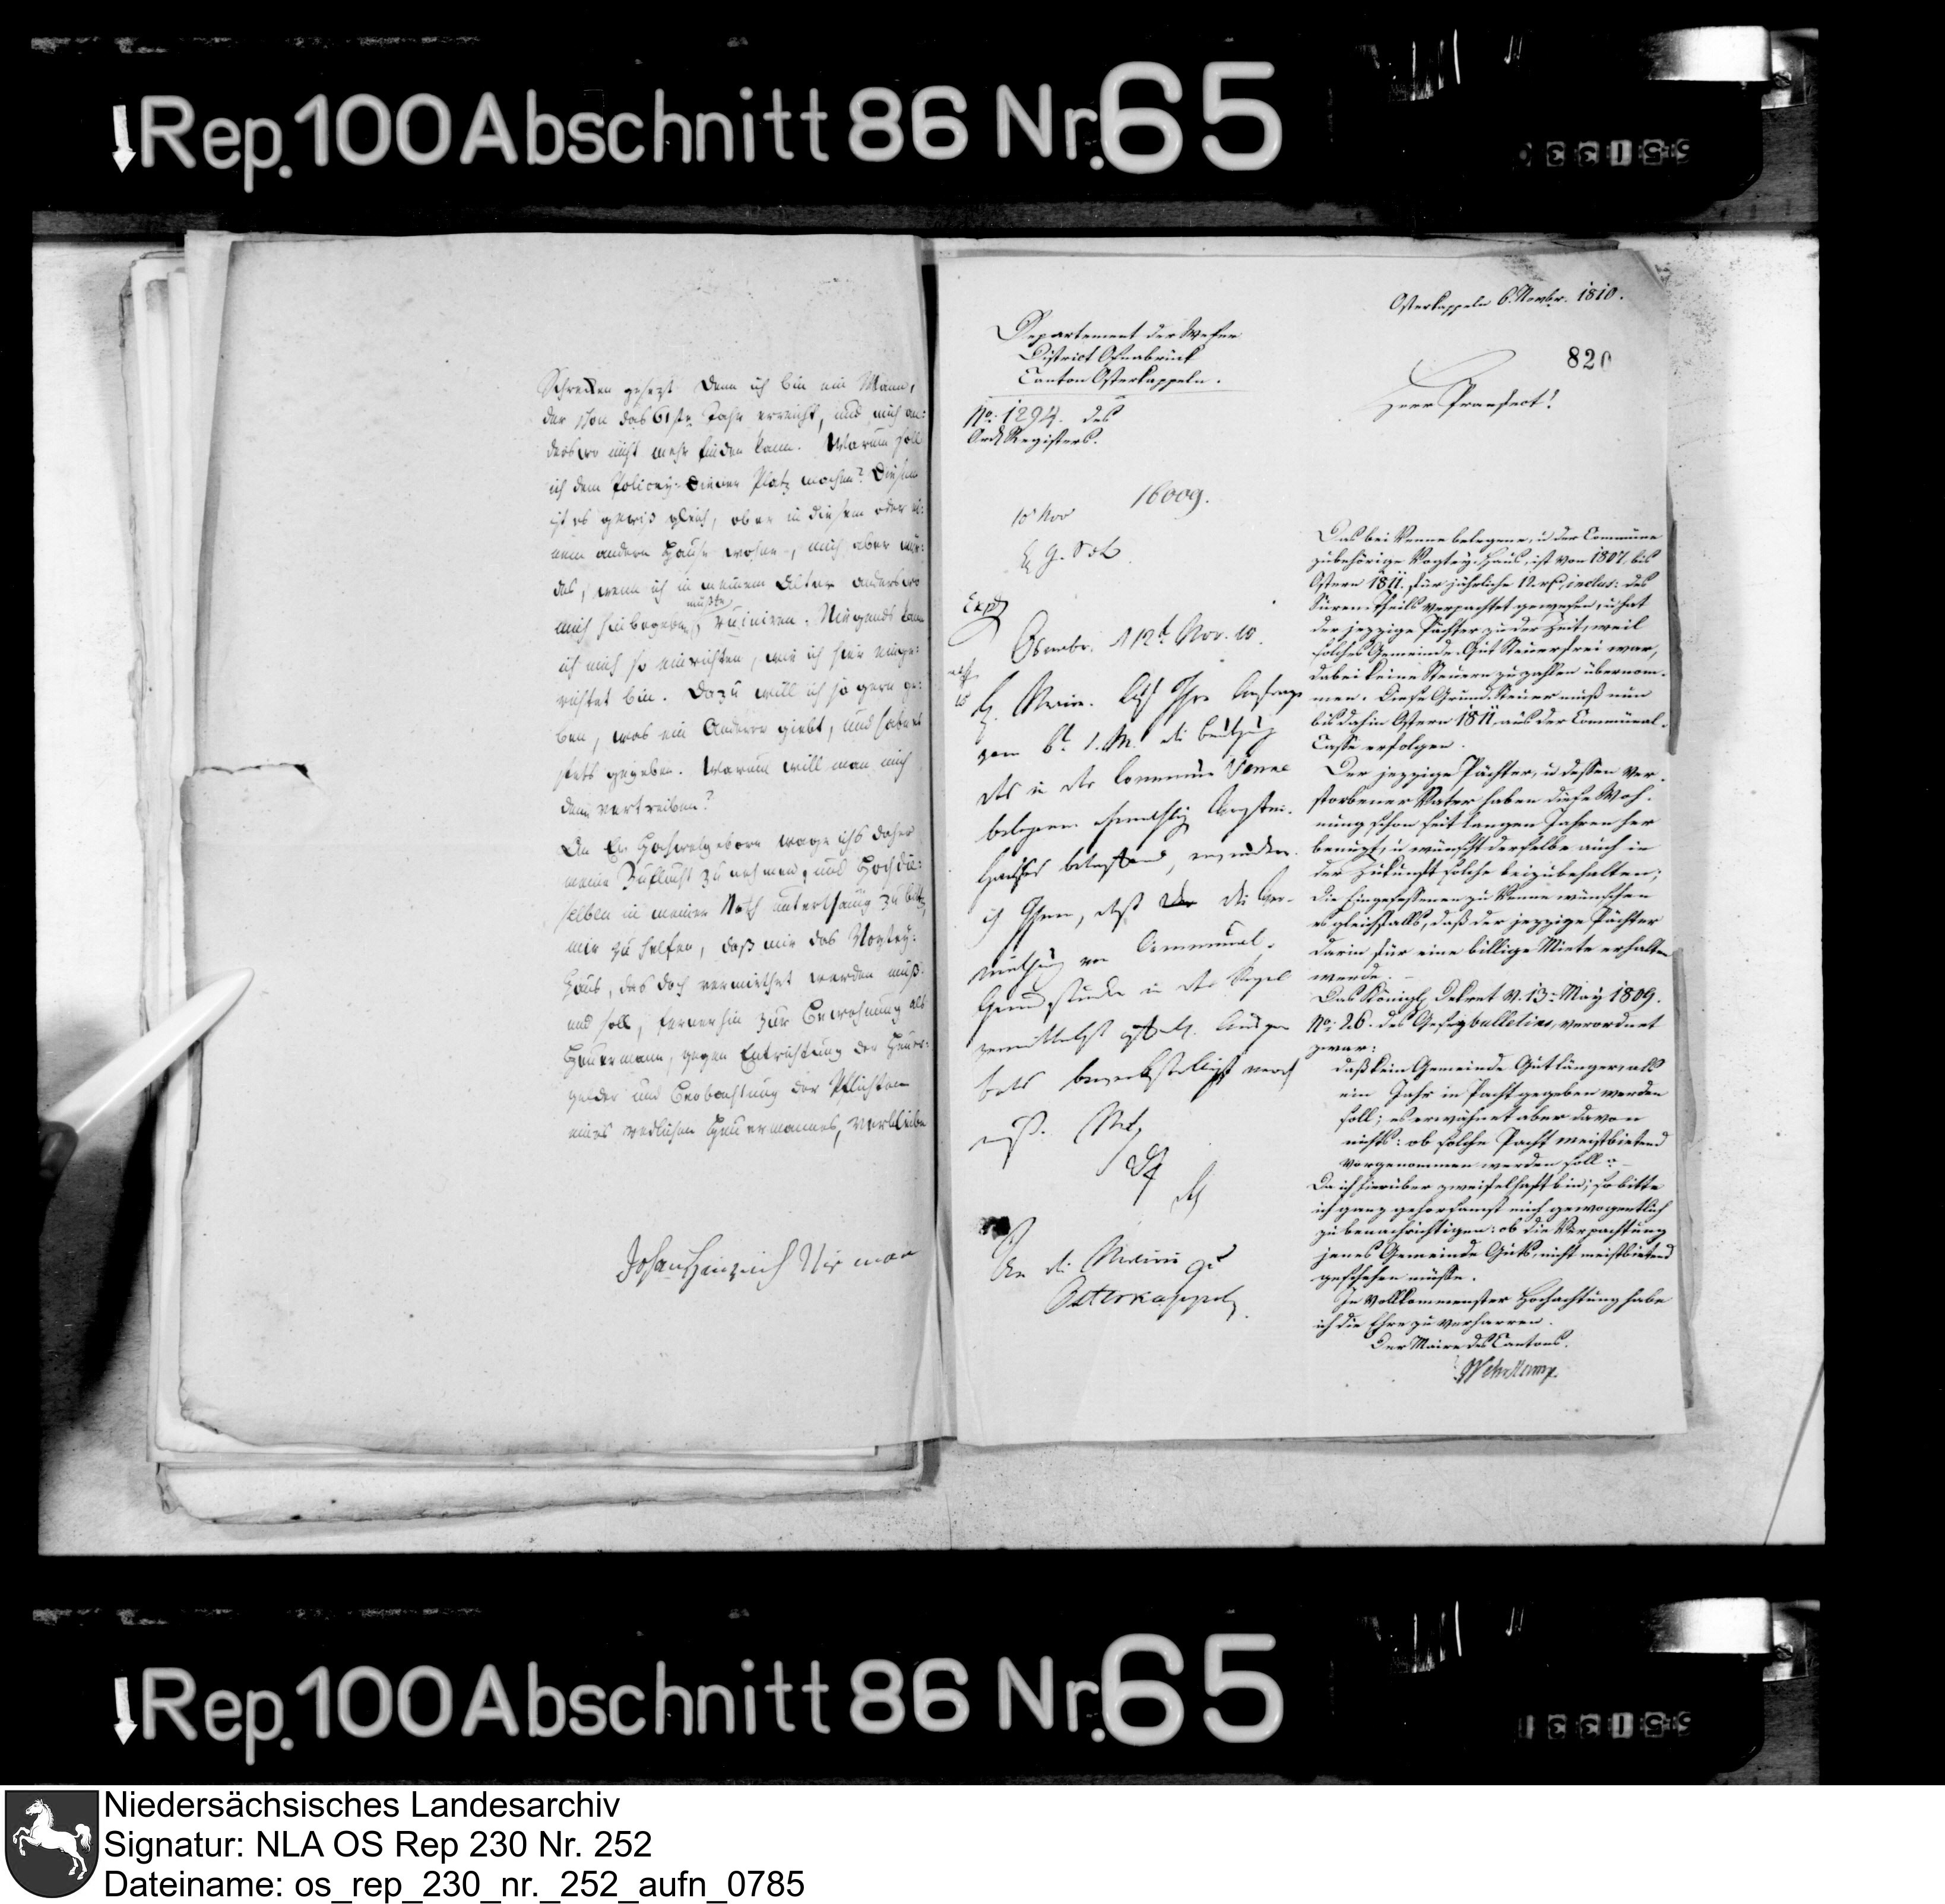 Rep. 100 Abschnitt 86 Nr. 65
Schrecken gesezt. Denn ich bin ein Mann,
der schon das 61ste Jahr erreicht, und mich an-
derswo nicht mehr finden kann. Warum soll
ich dem Policey-Diener Platz machen? Diesem
ist es gewis gleich, ob er in diesem oder ei-
nem andern Hause wohne, mich aber wür-
das, wenn ich in meinem Alter anderswo
mich hinbegeben müßte, ruiniren. Nirgends kan
ich mich so einrichten, wie ich hier einge-
richtet bin. Dazu will ich ja gern ge-
ben, was ein Anderer giebt, und habe es
stets gegeben. Warum will man mich
denn vertreiben?
An Ew. Hochwolgeborn wage ichs daher
meine Zuflucht zu nehmen, und Hochdie-
selben in meiner Noth unterthänig zu bitten,
mir zu helfen, daß mir das Vogtey-
Haus, das doch vermiethet werden muß
und soll, fernerhin zur Bewohnung als
Heuermann, gegen Entrichtung der Heuer-
gelder und Beobachtung der Pflichten
eines redlichen Heuermannes, verbleibe
Johan Hinrich Nieman
Osterkappeln 6. Novbr. 1810.
820
Departement der Weser
District Osnabrück
Canton Osterkappeln.
No. 1294. des
Registers.
Herr Praefect!
10 Nov 16009.
Exp
Osnabr. d 12t Nov. 10.
H. Maire. Auf Ihre Anfrage
vom 6t. l. M. die
des in der Commüne Venne
belegenen
Hauses betreffend, erwiedere
ich Ihnen, daß die Ver-
miethung von Communal-
Grundstücken in der Regel
vermittelst öffentl. Ausge-
bots bewerkstelligt werden
muß.
An die Mairie zu
Osterkappeln.
Das bei Venne belegene, u der Commüne
zubehörige Vogtey-Haus, ist von 1807 bis
Ostern 1811. für jährliche 12 rt. inclus: des
Süren-Theils verpachtet gewesen, u hat
der jezzige Pächter zu der Zeit, weil
solches Gemeinde-Gut Steuerfrei war,
dabei keine Steuern zu zahlen übernom-
men. Diese Grund-Steuer muß nun
bis dahin Ostern 1811, aus der Commünal-
Casse erfolgen.
Der jezzige Pächter, u dessen ver-
storbener Vater haben diese Woh-
nung schon seit langen Jahren her
benuzt, u wünscht derselbe auch in
der Zukunft solche beizubehalten;
die Eingesessenen zu Venne wünschen
es gleichfalls, daß der jezzige Pächter
darin für eine billige Miete erhalten
werde. -
Das Königl. Dekret v. 13. May 1809.
No: 26. des Gesezbulletins, verordnet
zwar:
daß kein Gemeinde Gut länger, als
ein Jahr in Pacht gegeben werden
soll; es erwähnet aber davon
nichts: ob solche Pacht meistbietend
vorgenommen werden soll? -
Da ich hierüber zweifelhaft bin; so bitte
ich ganz gehorsamst mich gewogentlich
zu benachrichtigen: ob die Verpachtung
jenes Gemeinde Guts, nicht meistbietend
geschehen müsse.
In vollkommenster Hochachtung habe
ich die Ehre zu verharren.
Der Maire des Cantons.
Wehrkamp.
Rep. 100 Abschnitt 86 Nr. 65
Niedersächsisches Landesarchiv
Signatur: NLA OS Rep 230 Nr. 252
Dateiname: os_rep_230_nr._252_aufn_0785